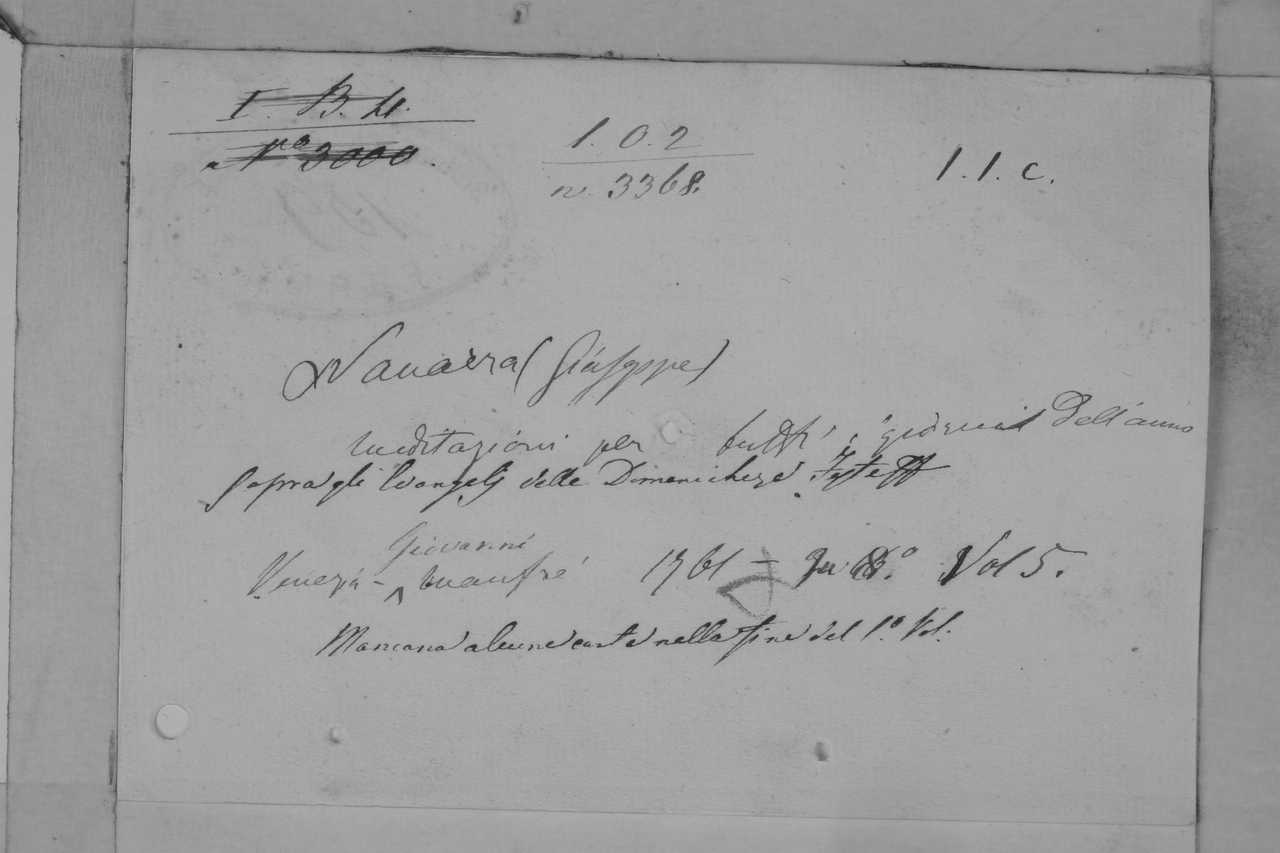 I. B. 4.
N.º 3000.
1. O. 2
n. 3368.
1. 1. c.
Navarra (Giuseppe)
meditazioni per tutti i giorni Dell'anno
Sopra gli Evangelj delle Dimeniche, e Feste
Venezia - Giovanni Manfré 1761 - In 8.º Vol 5.
Mancano alcune carte nella fine del 1.º Vol.